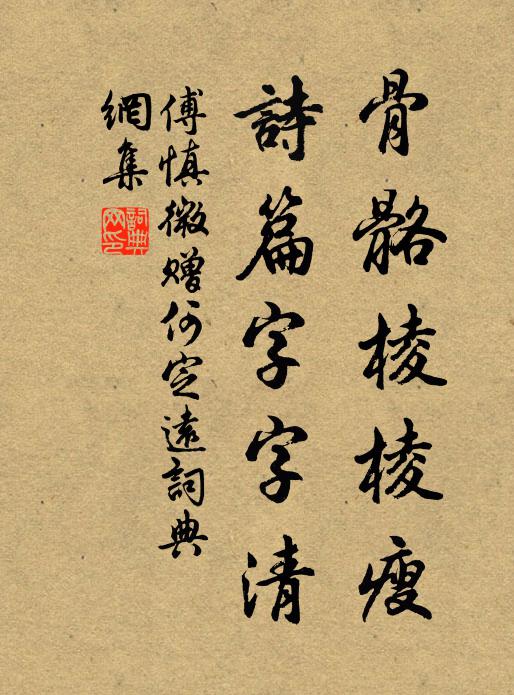 骨骼棱棱瘦
詩篇字字清
傅慎微贈何定遠詞典
網集
詞典
网印